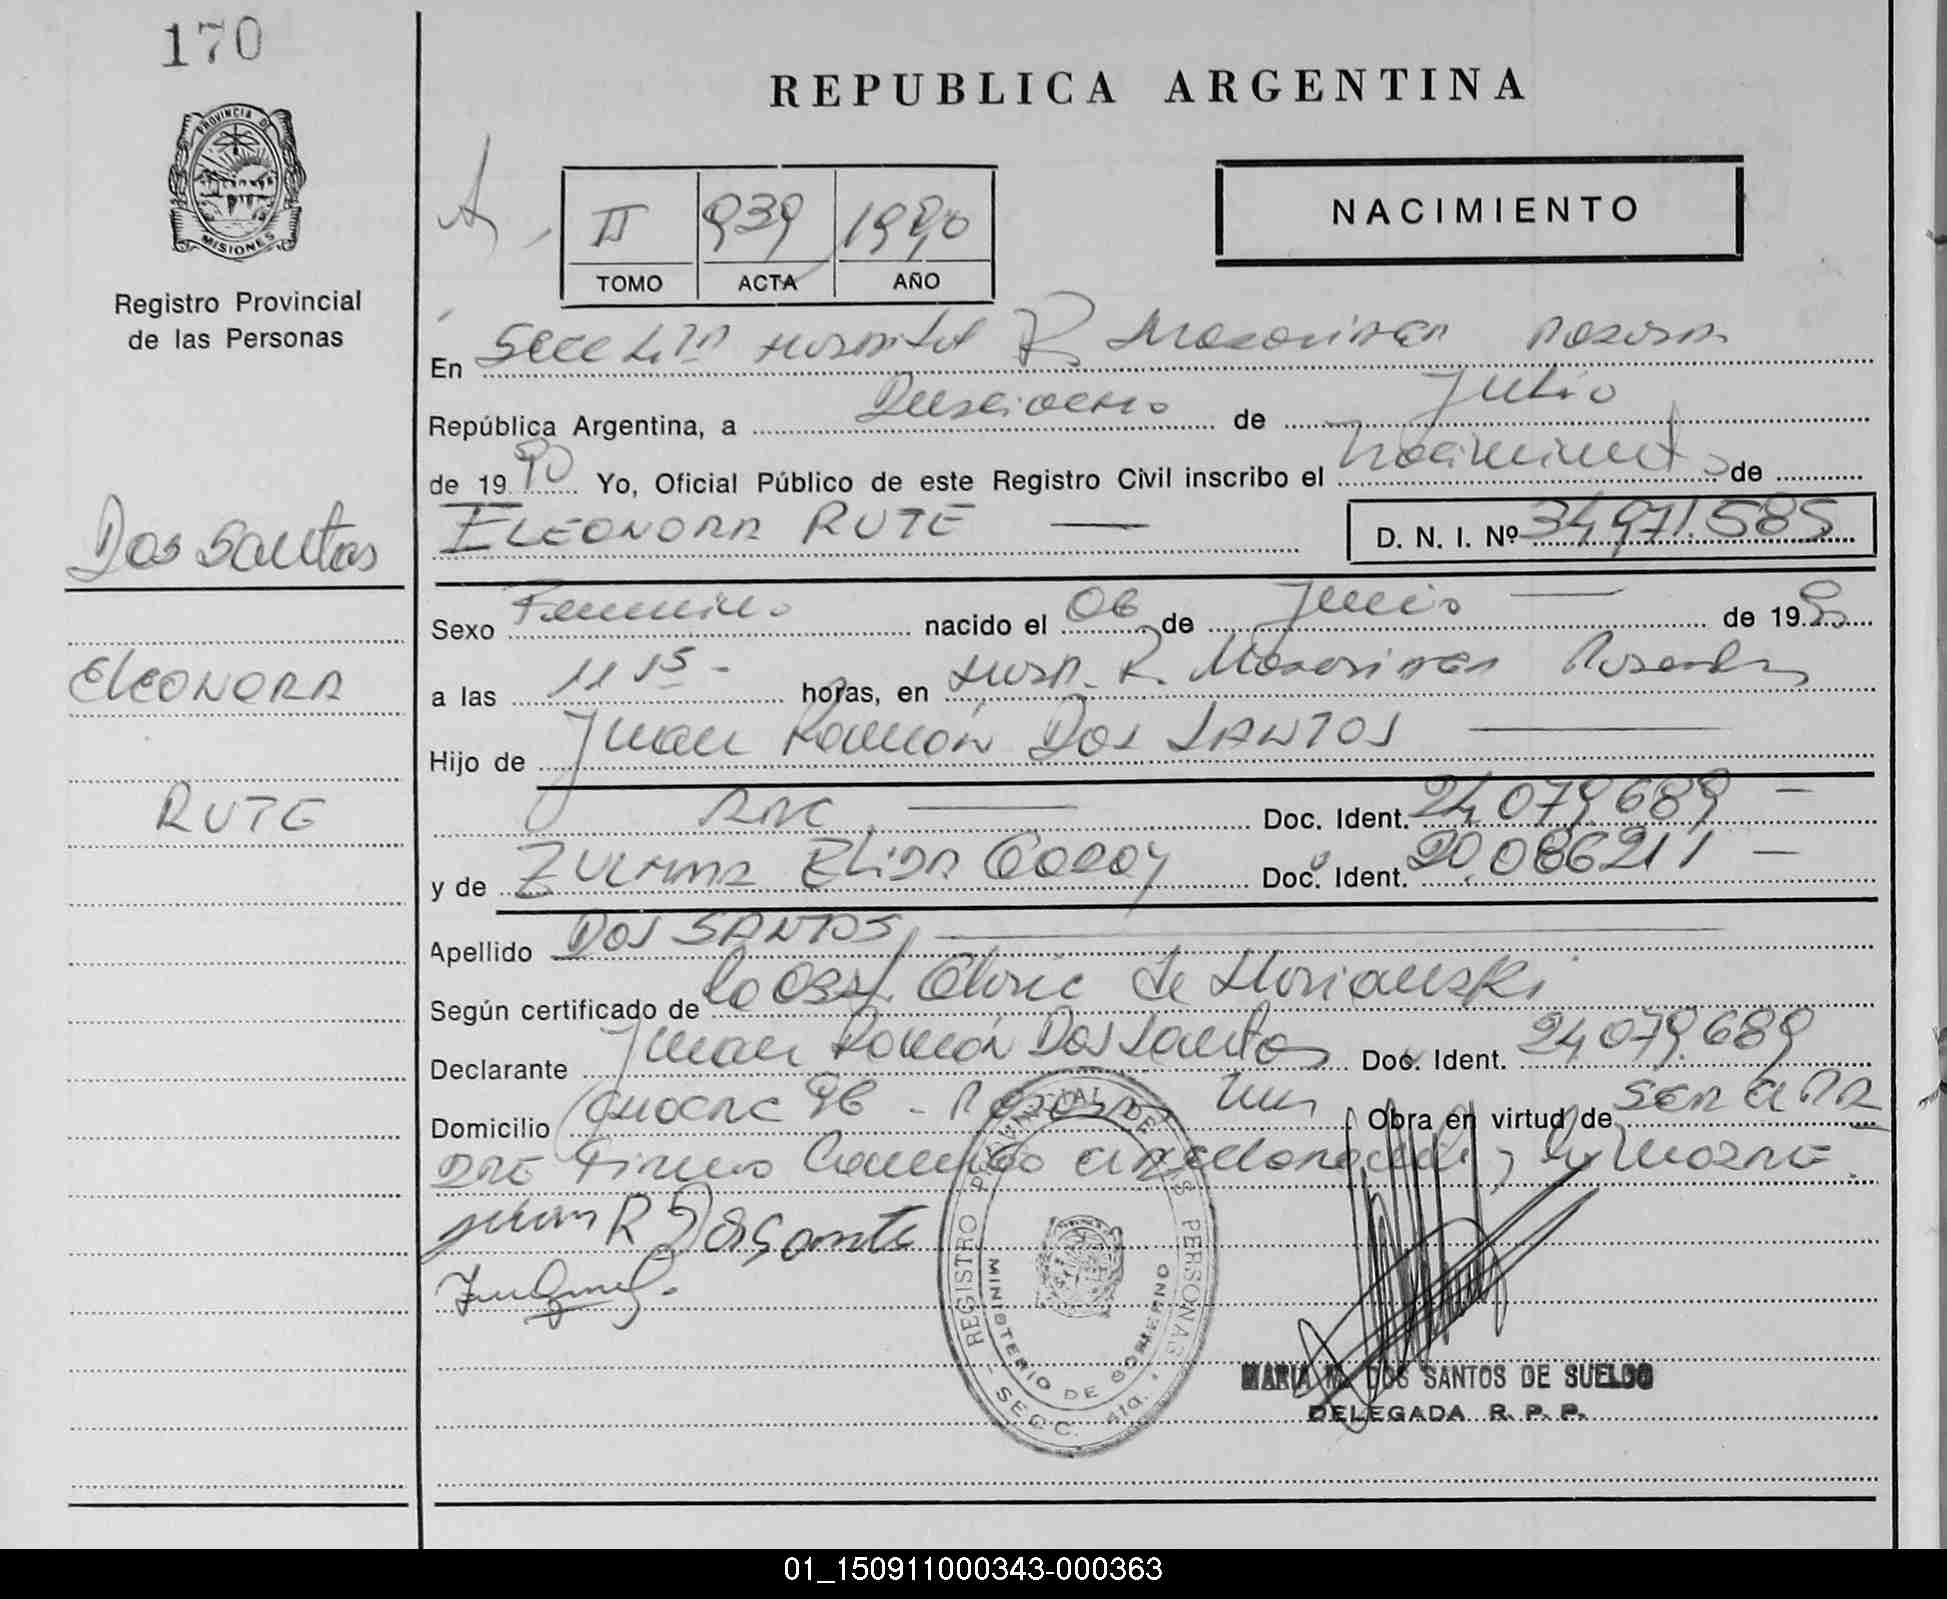 170
PROVINCIA DE
MISIONES
Registro Provincial
de las Personas
Dos Santos
ELEONORA
RUTE
REPUBLICA ARGENTINA
II 939 1990
TOMO ACTA AÑO
NACIMIENTO
En Secc 4ta Hospital R Madariaga Posadas
República Argentina, a Dieciocho de Julio
de 1990 Yo, Oficial Público de este Registro Civil inscribo el Nacimiento de
ELEONORA RUTE — D. N. I. Nº 34.971.585
Sexo Femenino nacido el 06 de Junio — de 1990
a las 11 15 - horas, en Hosp. R. Madariaga Posadas
Hijo de Juan Ramón DOS SANTOS —
— Doc. Ident. 24.079.689 —
y de ZULMMA ELIDA GODOY Doc. Ident. 20.086211 —
Apellido DOS SANTOS —
Según certificado de la Obst. de
Declarante Juan Ramón Dos Santos Doc. Ident. 24.079.689
Domicilio 96 - Obra en virtud de ser el PA
DRE Firma y la MADRE.
Juan R Dos Santos
REGISTRO PROVINCIAL DE LAS PERSONAS - SECC. 4ta.
MINISTERIO DE GOBIERNO
MARIA M. DOS SANTOS DE SUELDO
DELEGADA R. P. P.
01_150911000343-000363